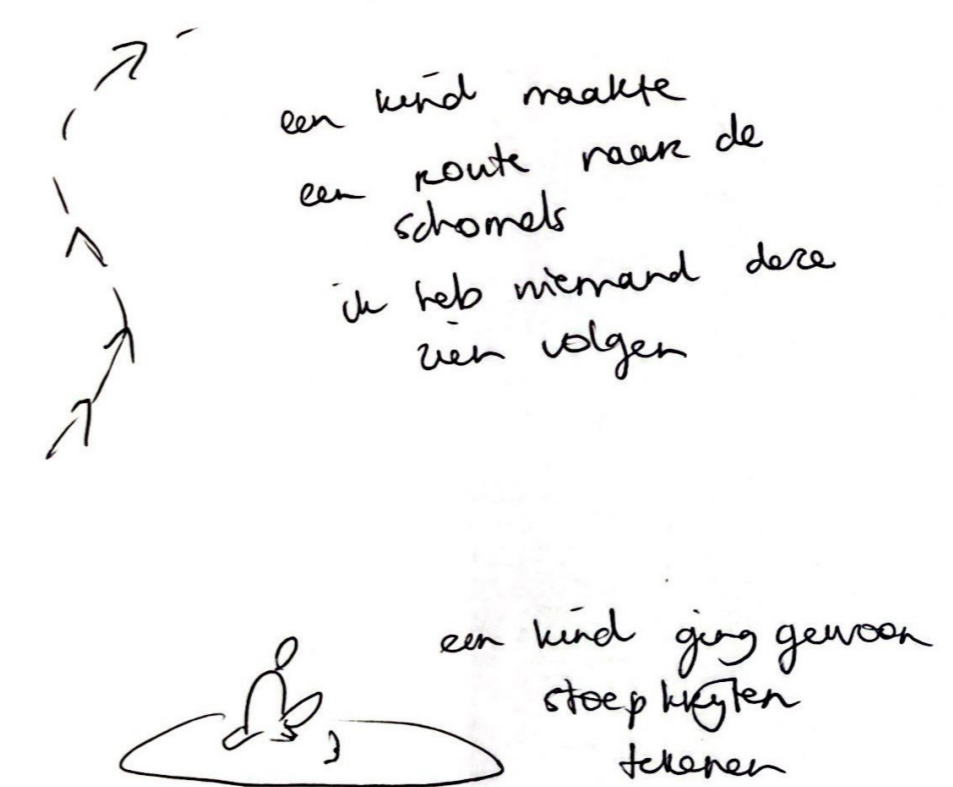 een kind maakte
een route naar de
schomels
ik heb niemand deze
zien volgen
een kind ging gewoon
stoepkrijten
tekenen